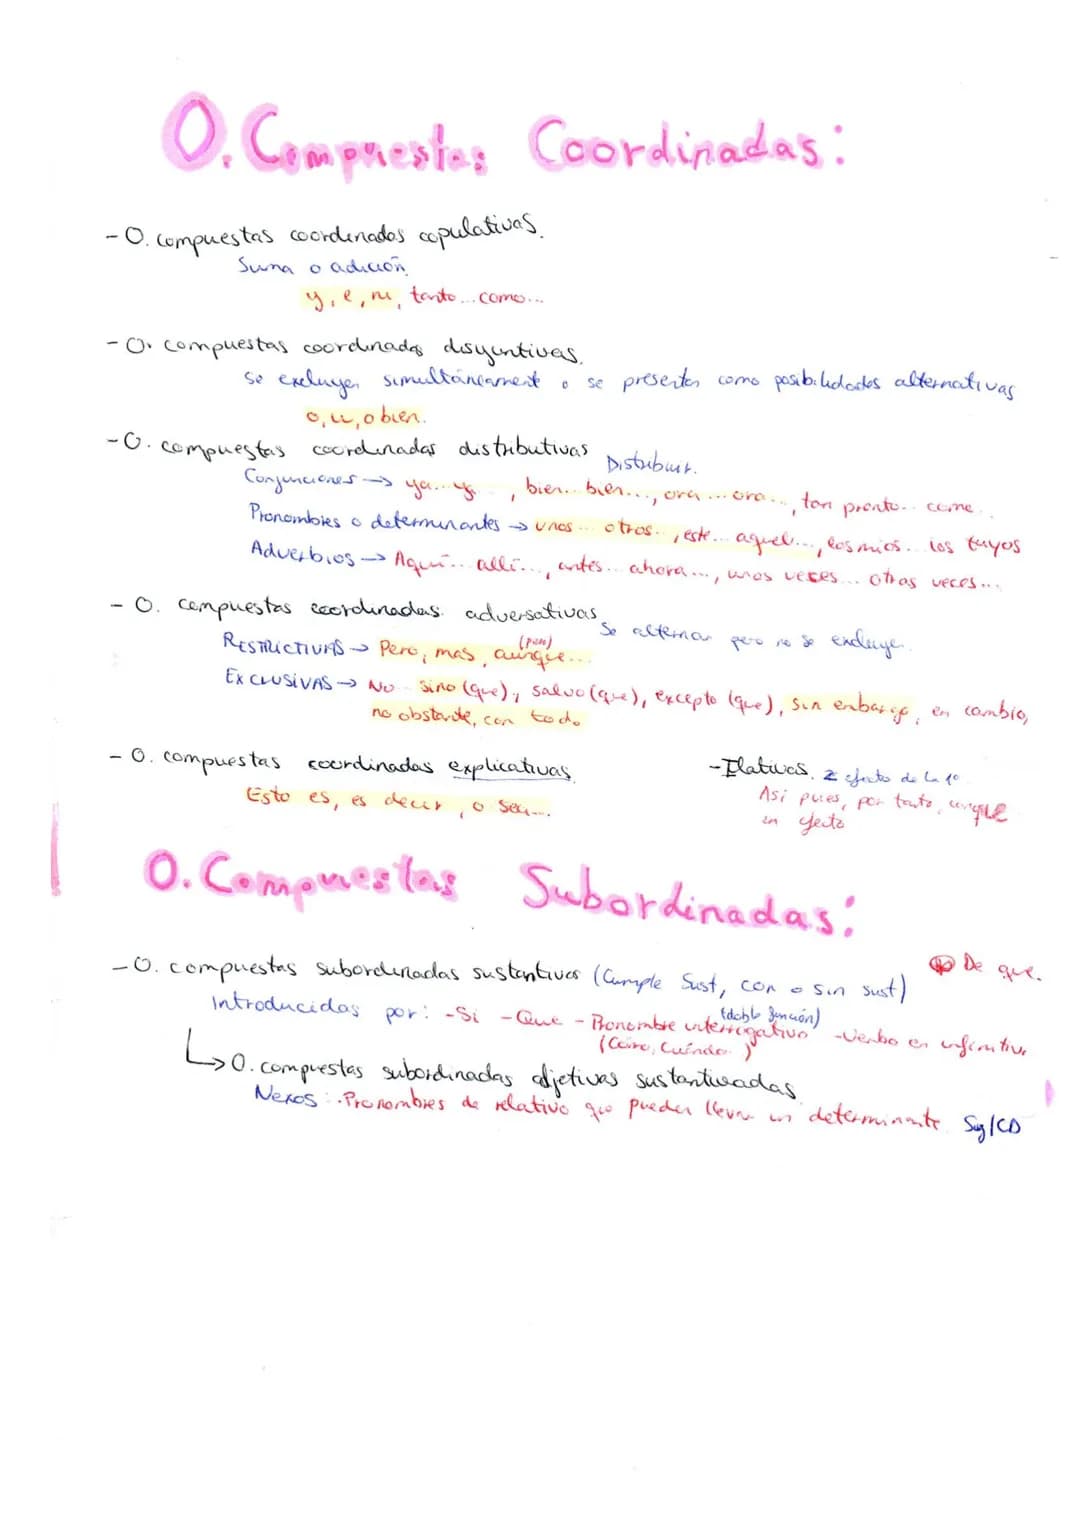 O. Compuestas Coordinadas:
- O. compuestas coordinadas copulativas.
Suma o adición.
y, e, ni, tanto... como...
- O. compuestas coordinadas disyuntivas.
se excluyen simultáneamente o se presentan como posibilidades alternativas
o, u, o bien.
- O. compuestas coordinadas distributivas Distribuir.
Conjunciones → ya... ya..., bien... bien..., ora... ora..., tan pronto... como...
Pronombres o determinantes → unos... otros..., este... aquel..., los míos... los tuyos
Adverbios → Aquí... allí..., antes... ahora..., unas veces... otras veces...
- O. compuestas coordinadas adversativas. Se alternan pero no se excluye.
(pero)
RESTRICTIVAS → Pero, mas, aunque...
EXCLUSIVAS → No... sino (que), salvo (que), excepto (que), sin embargo, en cambio,
no obstante, con todo
- O. compuestas coordinadas explicativas
Esto es, es decir, o sea...
- Ilativas. 2 efecto de la 1º
Así pues, por tanto, conque
en efecto
O. Compuestas Subordinadas:
- O. compuestas subordinadas sustantivas (Cumple Sust, con o sin sust) De que.
(doble función)
Introducidas por: - Si - Que - Pronombre interrogativo - Verbo en infinitivo
(Cómo, Cuándo..)
↳ O. compuestas subordinadas adjetivas sustantivadas.
Nexos: · Pronombres de relativo que pueden llevar un determinante. Suj/CD